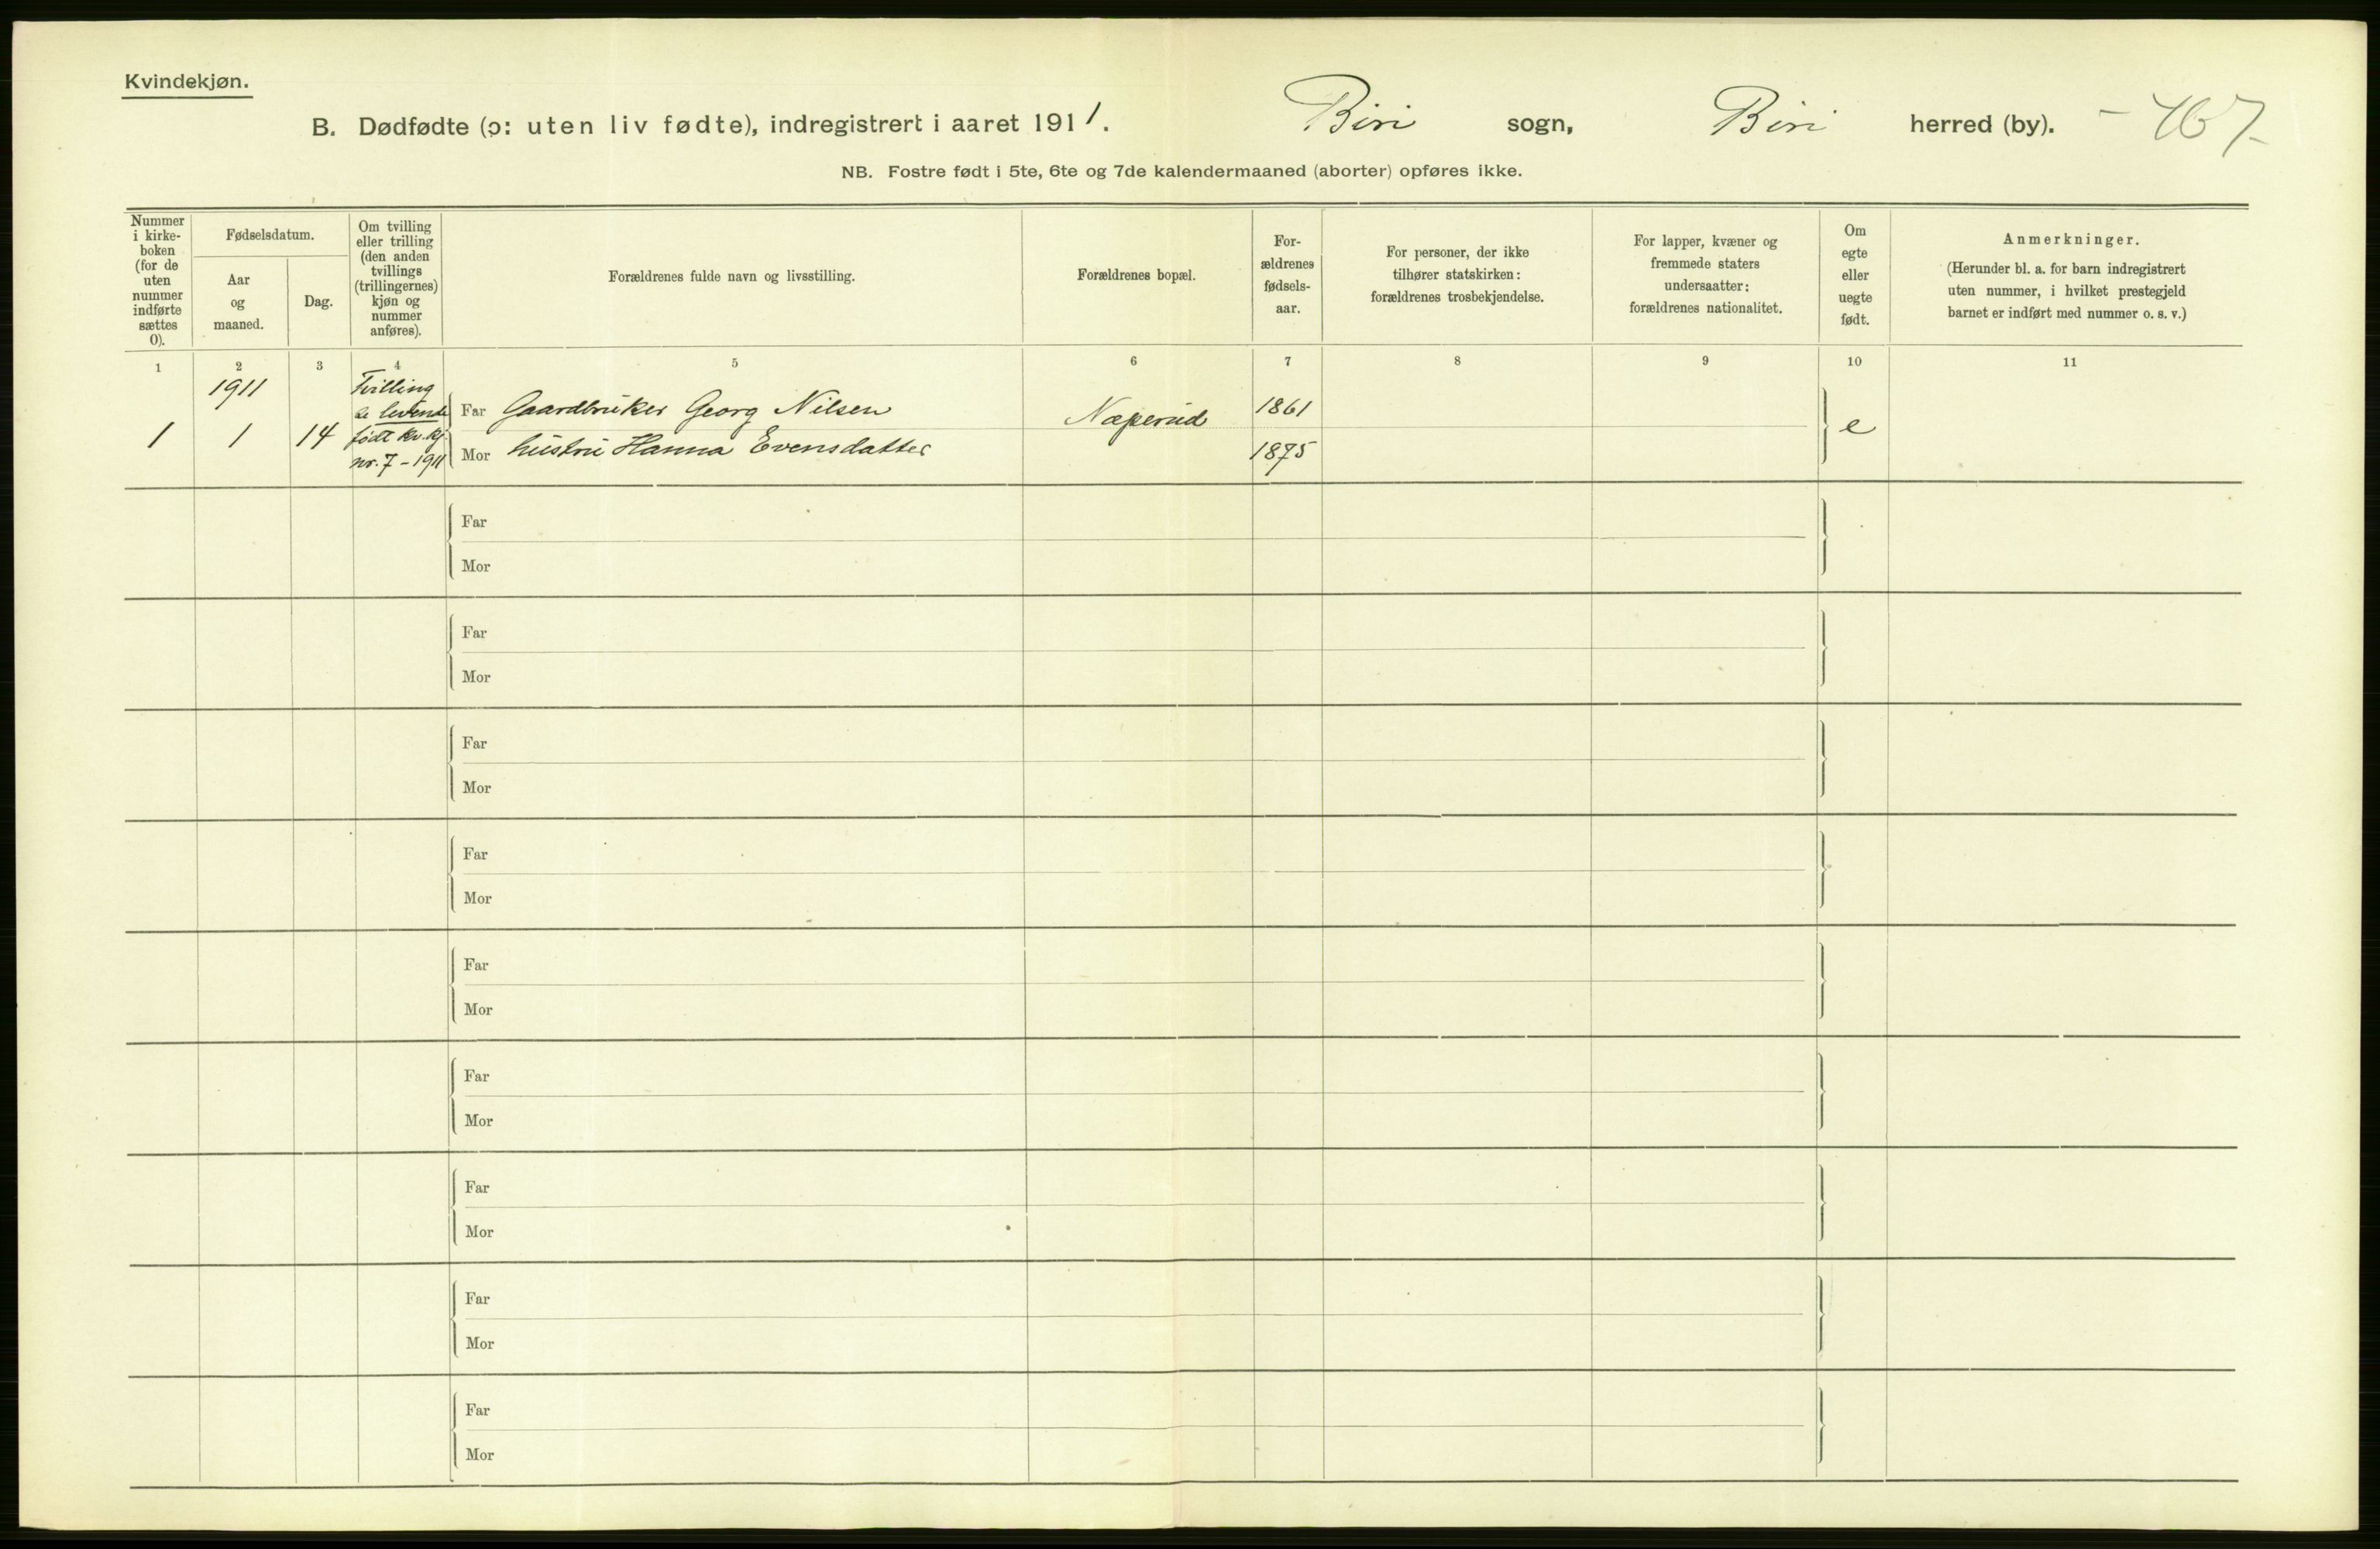 Kvindekjøn.
B. Dødfødte (ɔ: uten liv fødte), indregistrert i aaret 1911. Biri sogn, Biri herred (by). - 467-
NB. Fostre født i 5te, 6te og 7de kalendermaaned (aborter) opføres ikke.
Nummer i kirke-boken (for de uten nummer indførte sættes 0).
Fødselsdatum.
Aar og maaned.
Dag.
Om tvilling eller trilling (den anden tvillings (trillingernes) kjøn og nummer anføres).
Forældrenes fulde navn og livsstilling.
Forældrenes bopæl.
For-ældrenes fødsels-aar.
For personer, der ikke tilhører statskirken: forældrenes trosbekjendelse.
For lapper, kvæner og fremmede staters undersaatter: forældrenes nationalitet.
Om egte eller uegte født.
Anmerkninger.
(Herunder bl. a. for barn indregistrert uten nummer, i hvilket prestegjeld barnet er indført med nummer o. s. v.)
1 2 3 4 5 6 7 8 9 10 11
1911
1 1 14
Tvilling
se levende
født kv.kj.
nr. 7 - 1911
Far Gaardbruker Georg Nilsen Næperud 1861
Mor hustru Hanna Evensdatter 1875
e
Far
Mor
Far
Mor
Far
Mor
Far
Mor
Far
Mor
Far
Mor
Far
Mor
Far
Mor
Far
Mor